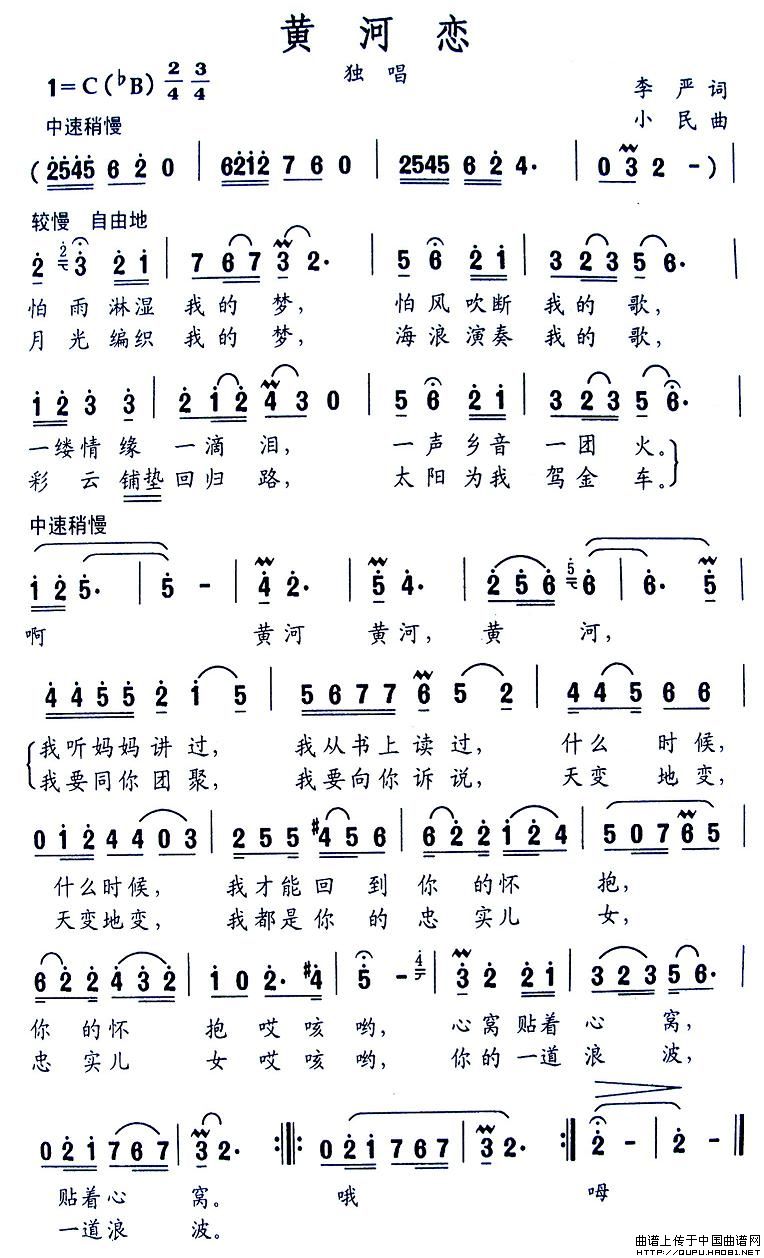 黄河恋
独唱
1=C(♭B) 2/4 3/4
李严词
小民曲
中速稍慢
(2545 6 2 0 | 6212 7 6 0 | 2545 6 2 4· | 0 3 2 - ) |
较慢 自由地
2 2 3 2 1 | 7 6 7 3 2· | 5 6 2 1 | 3 2 3 5 6· |
怕雨淋湿我的梦, 怕风吹断我的歌,
月光编织我的梦, 海浪演奏我的歌,
1 2 3 3 | 2 1 2 4 3 0 | 5 6 2 1 | 3 2 3 5 6· |
一缕情缘一滴泪, 一声乡音一团火。
彩云铺垫回归路, 太阳为我驾金车。
中速稍慢
1 2 5· | 5 - | 4 2· | 5 4· | 2 5 6 5 6 | 6· 5 |
啊 黄河 黄河, 黄 河,
4 4 5 5 2 1 5 | 5 6 7 7 6 5 2 | 4 4 5 6 6 |
我听妈妈讲过, 我从书上读过, 什么时候,
我要同你团聚, 我要向你诉说, 天变地变,
0 1 2 4 4 0 3 | 2 5 5 #4 5 6 | 6 2 2 1 2 4 | 5 0 7 6 5 |
什么时候, 我才能回到你的怀抱,
天变地变, 我都是你的忠实儿女,
6 2 2 4 3 2 | 1 0 2· #4 | 5 - 4 | 3 2 2 1 | 3 2 3 5 6· |
你的怀抱哎咳哟, 心窝贴着心窝,
忠实儿女哎咳哟, 你的一道浪波,
0 2 1 7 6 7 | 3 2· :||: 0 2 1 7 6 7 | 3 2· :|| 2 - | 2 - ||
贴着心窝。 哦 呣
一道浪波。
曲谱上传于中国曲谱网
HTTP://QUPU.HAO81.NET